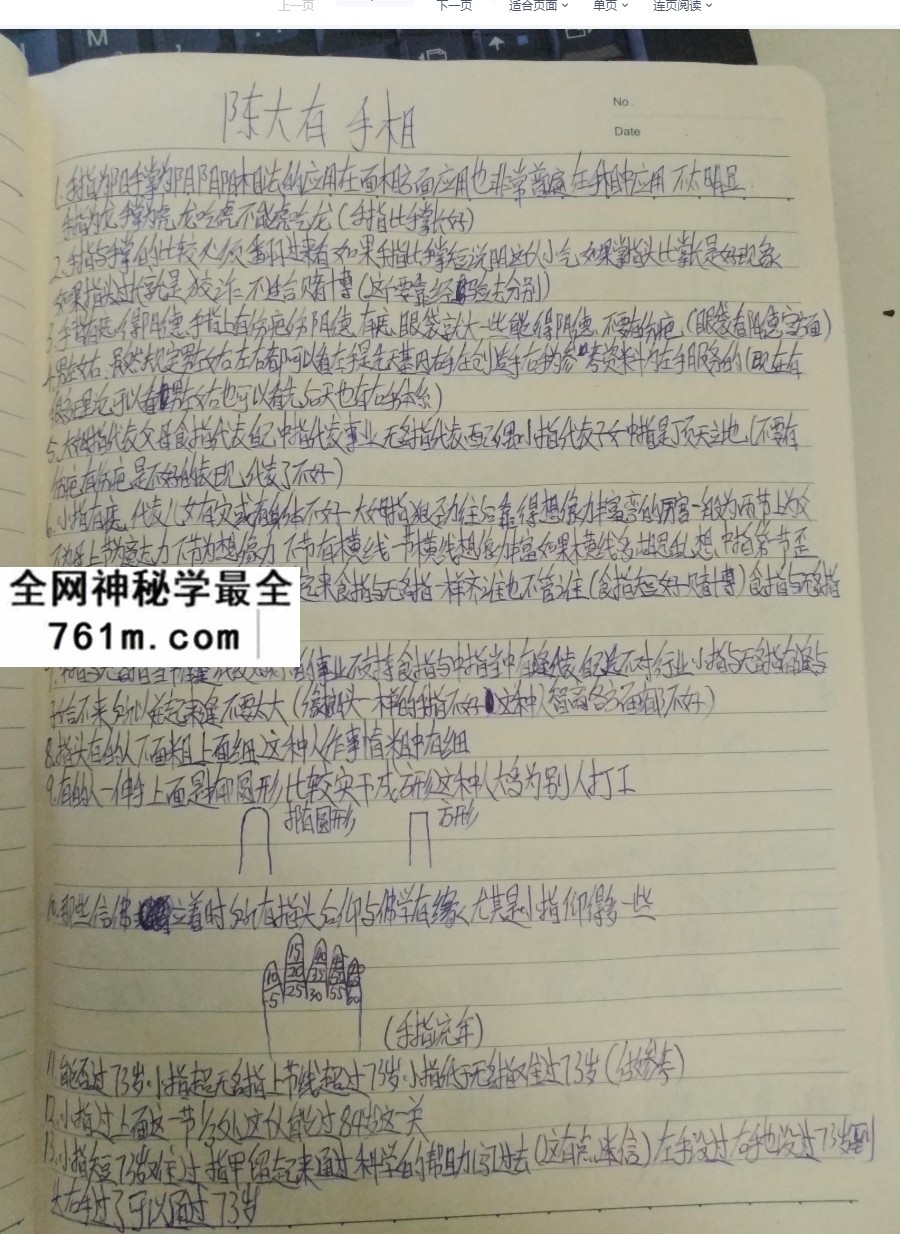 上一页 下一页 适合页面 单页 连页阅读
M
No
Date
陈大有 手相
1.手指为阳手掌为阴阴阳相法的应用在面相方面应用也非常普遍在手相中应用不太明显.
手指为龙手掌为虎龙吃虎不能虎吃龙(手指比手掌长好)
2.手指与手掌的比较必须翻过来看如果手指比掌短说明这人小气如果掌指头比掌长是好现象
如果指头过长就是狡诈不适合赌博(这个要靠经验去分别)
3.手指有痣得阴德手指上有伤疤伤阴德有痣眼袋就大一些能得阴德不要有伤疤(眼袋看阴德方面)
4.男左女右虽然规定男左女右左右都可以看左手是先天基因右手在创造手右手为参考资料为左手服务的(现在有
很多理论可以看男左女右也可以看先后天也有右手体系)
5.大姆指代表父母食指代表自己中指代表事业无名指代表配偶小指代表子女中指是顶天立地(不要有
伤疤有伤疤是不好的表现代表了不好)
6.小指有痣代表儿女有灾或者身体不好大姆指狠劲往后靠得想像力丰富弯的厉害一般为两节上为父
下为母上节为意志力下节为想像力下节有横线一节横线想像力丰富如果横线多胡思乱想中指第一节歪
起来食指与无名指一样齐谁也不管谁(食指短好赌博)食指与无名指
全网神秘学最全
761m.com
事业不支持食指与中指当中有缝代表自己选不对行业小指与无名指有缝与
子合不来所以并起来缝不要太大(像 头一样的手指不好这种人智商各方面都不好)
8.指头有的人下面粗上面细这种人作事情粗中有细
9.有的人一伸手上面是椭圆形比较实干或方形这种人大多为别人打工
椭圆形 方形
10.那些信佛 立着时所有指头后仰与佛学有缘尤其是小指仰得多一些
15
10 20
25 30 55 60
(手指流年)
11.能否过73岁.小指超无名指上节线超过73岁.小指低于无名指难过73岁(供参考)
12.小指过上面这一节½处这人能过84岁这一关
13.小指短73岁难过指甲留起来通过科学的帮助闯过去(这有点迷信)左手没过右手也没过73岁到
大右手过了可以通过73岁